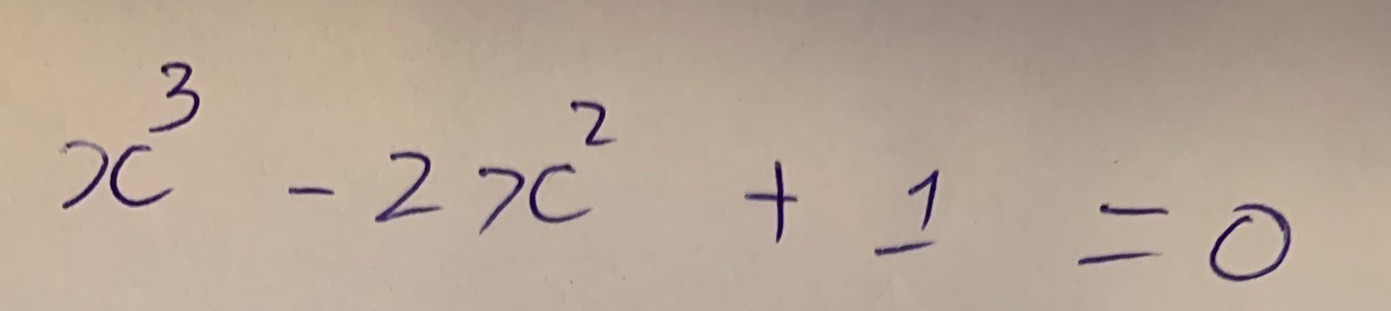 x³ - 2x² + 1 = 0